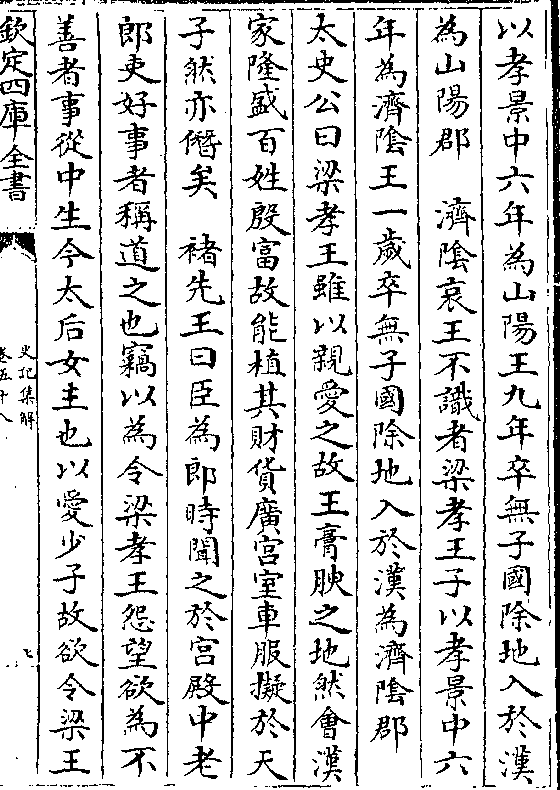 以孝景中六年為山陽王九年卒無子國除地入於漢
為山陽郡　濟陰哀王不識者梁孝王子以孝景中六
年為濟陰王一歲卒無子國除地入於漢為濟陰郡
太史公曰梁孝王雖以親愛之故王膏腴之地然會漢
家隆盛百姓殷富故能植其財貨廣宮室車服擬於天
子然亦僭矣　禇先王曰臣為郎時聞之於宮殿中老
郎吏好事者稱道之也竊以為令梁孝王怨望欲為不
善者事從中生今太后女主也以愛少子故欲令梁王
欽定四庫全書
史記集解
卷五十八
七